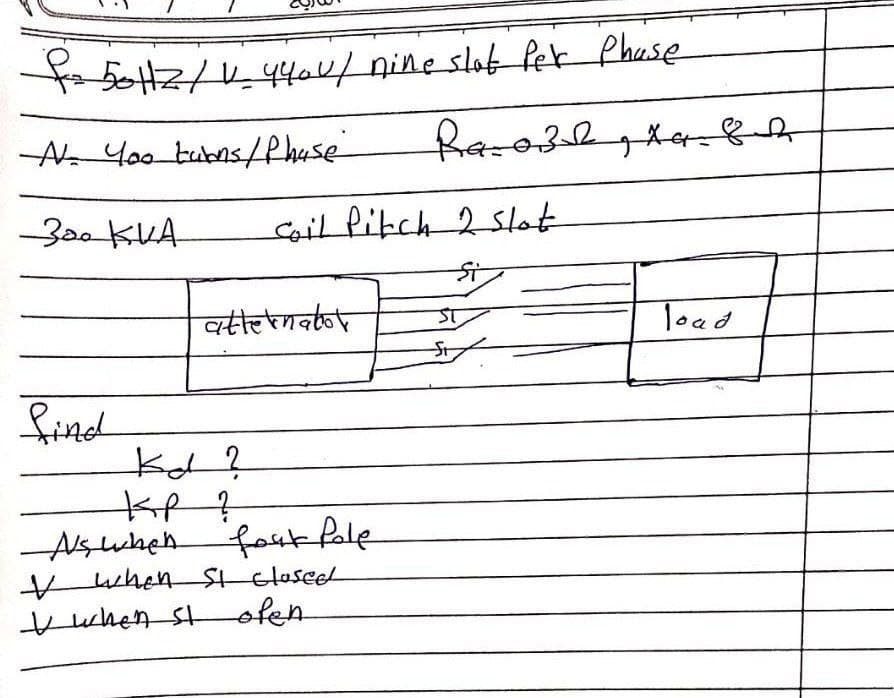 f= 50HZ / V= 440V / nine slot Per Phase
N= 400 turns/Phase Ra=0.3Ω , Xa=8Ω
300 KVA Coil Pitch 2 slot
S1
alternator S1 load
S1
find
Kd ?
KP ?
Ns when four Pole
V when S1 closed
V when S1 open